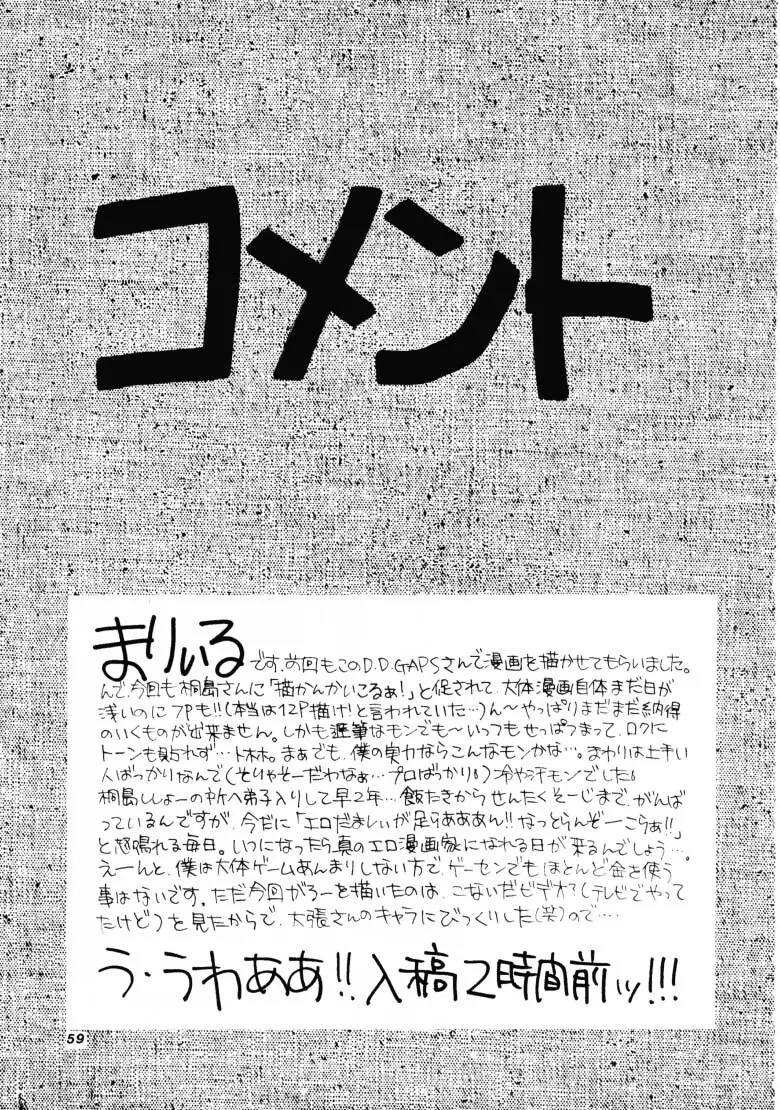 コメント
まりいるです。前回もこのD.D.GAPSさんで漫画を描かせてもらいました。
んで、今回も桐島さんに「描かんかいこるぁ!」と促されて、大体漫画自体まだ日が
浅いのに7Pも!!(本当は12P描け!と言われていた…)ん〜やっぱりまだまだ納得
のいくものが出来ません。しかも遅筆なモンでも〜いっつもせっぱつまって、ロクに
トーンも貼れず…トホホ。まぁでも、僕の実力ならこんなモンかな…。まわりは上手い
人ばっかりなんで(そりゃそーだわなぁ…プロばっかり)冷や汗モンでした。
桐島ししょーの所へ弟子入りして早2年…飯たきからせんたくそーじまで、がんば
っているんですが、今だに「エロだましいが足らああぁん!!なっとらんぞーこらぁ!!」
と怒鳴れる毎日。いつになったら真のエロ漫画家になれる日が来るんでしょう…。
えーんと、僕は大体ゲームあんまりしない方で、ゲーセンでもほとんど金を使う
事はないです。ただ今回がろーを描いたのは、こないだビデオ?(テレビでやって
たけど)を見たからで、大張さんのキャラにびっくりした(笑)ので‥‥
う・うわああ!!入稿2時間前ッ!!!
59